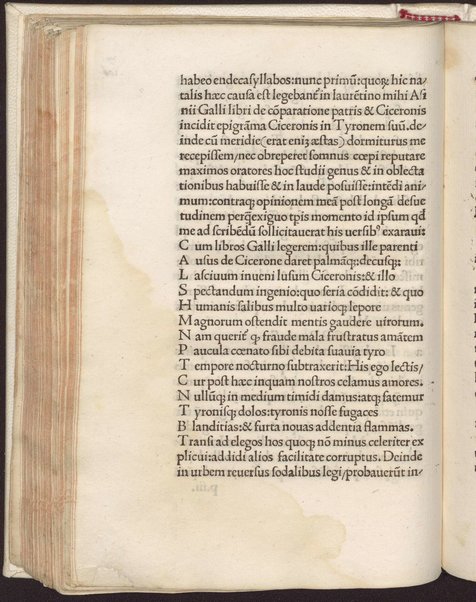 habeo endecasyllabos: nunc primũ: quorꝝ hic na⸗
talis hæc causa est legebanť in laurẽtino mihi Asi
nii Galli libri de cõparatione patris & Ciceronis
incidit epigrãma Ciceronis in Tyronem suũ. de⸗
inde cũ meridie (erat eniʒ æstas) dormiturus me
recepissem / nec obreperet somnus cœpi reputare
maximos oratores hoc studii genus & in oblecta
tionibus habuisse & in laude posuisse: intẽdi ani⸗
mum: contraqʒ opinionem meã post longã desue
tudinem perqʒ exiguo tp̃is momento id ipsum qđ
me ad scribẽdũ sollicitauerat his uersibꝰ exaraui:
C um libros Galli legerem: quibus ille parenti
A usus de Cicerone daret palmãqʒ: decusqʒ:
L asciuum inueni lusum Ciceronis: & illo
S pectandum ingenio: quo seria cõdidit: & quo
H umanis salibus multo uarioqʒ lepore
M agnorum ostendit mentis gaudere uirorum.
N am queriť qʒ fraude mãla frustratus amãtem
P aucula cœnato sibi debita suauia tyro
T empore nocturno subtraxerit: His ego lectis /
C ur post hæc inquam nostros celamus amores.
N ullũqʒ in medium timidi damus: atqʒ fatemur
T yronisqʒ dolos: tyronis nosse fugaces
B landitias: & furta nouas addentia flammas.
T ransi ad elegos hos quoqʒ nõ minus celeriter ex
plicui: addidi alios facilitate corruptus. Deinde
in urbem reuersus sodalibus legi / probauerũt in⸗